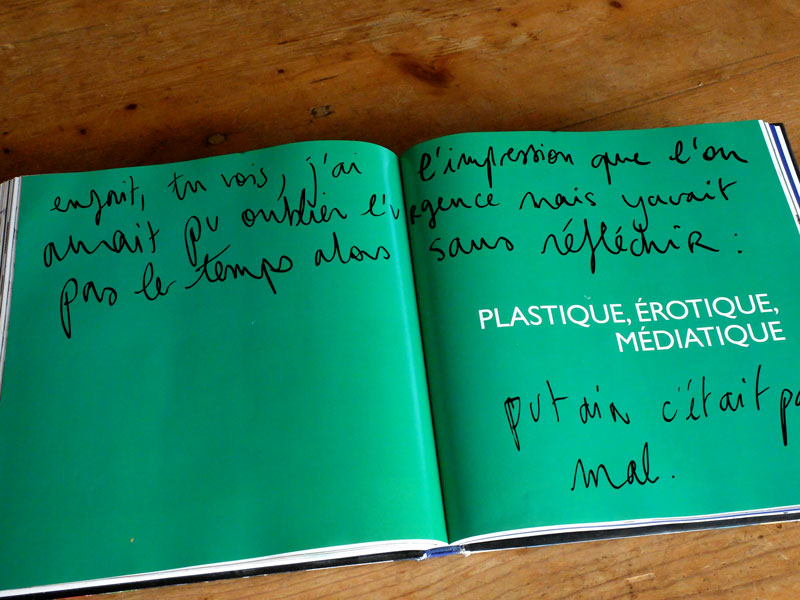 enfait, tu vois, j'ai l'impression que l'on
aurait pu oublier l'urgence mais yavait
pas le temps alors sans réfléchir :
PLASTIQUE, ÉROTIQUE,
MÉDIATIQUE
putain c'était pa
mal.